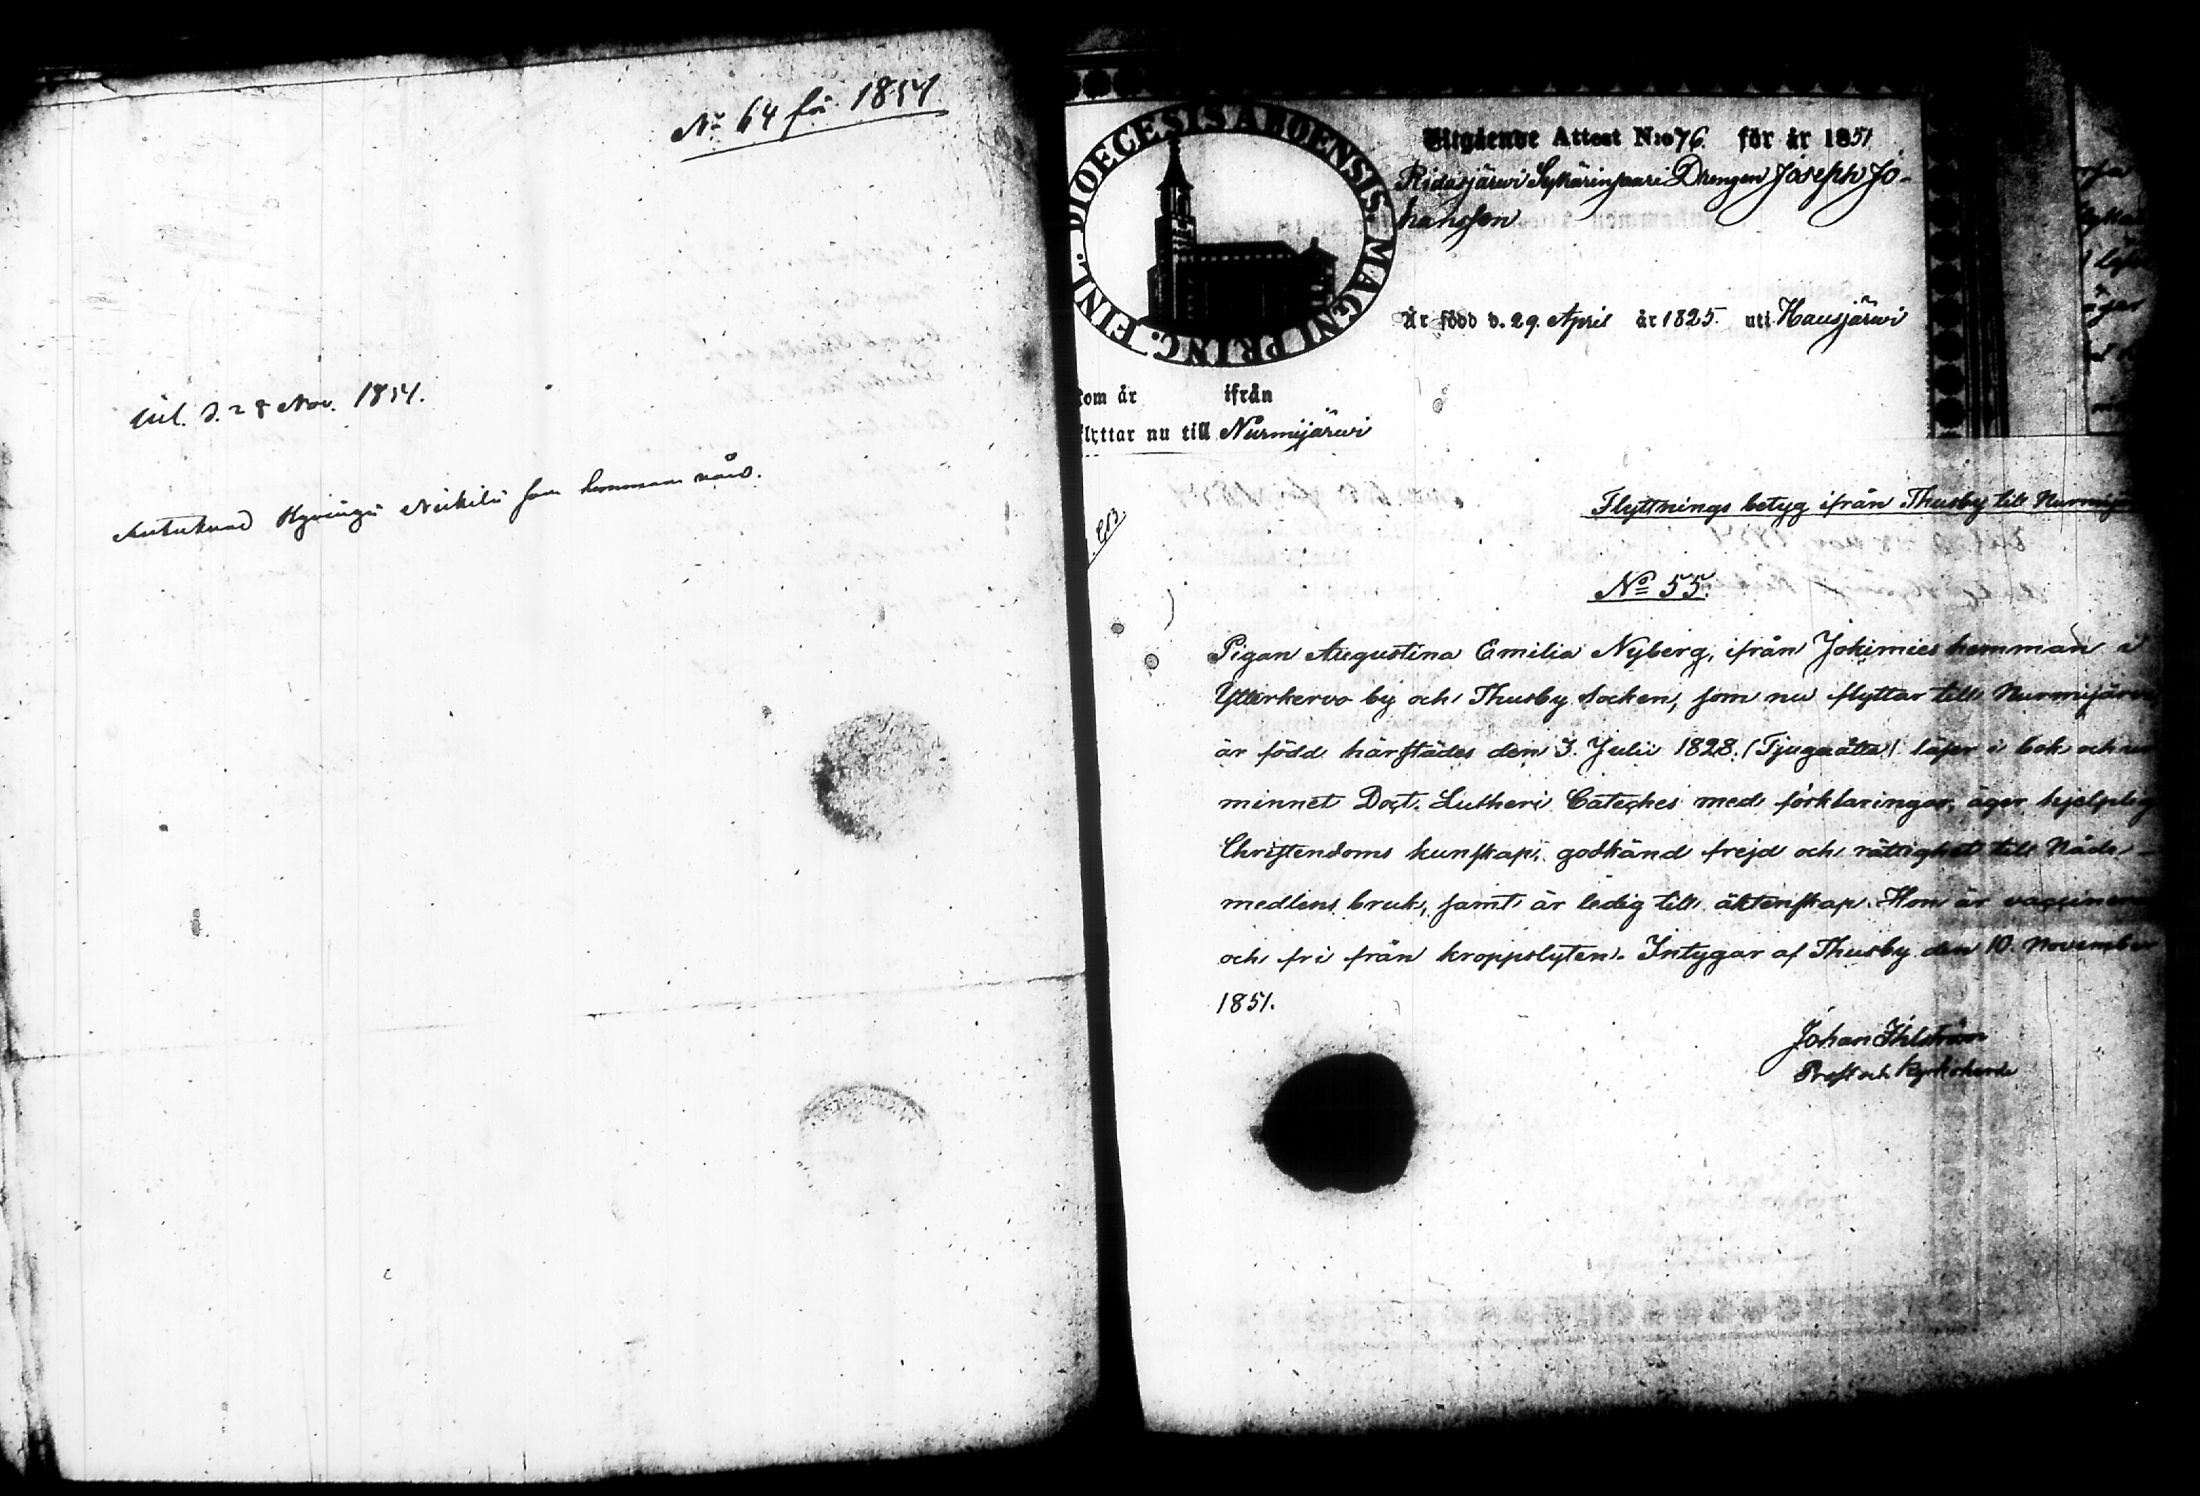 No 64 för 1851
Inl. d. 28 Nov. 1851.
Antecknad Hyvinge som
DIOECESIS ABOENSIS. MAGNI PRINC. FINL.
Utgående Attest N:o 76. för år 1851
Ridasjärwi Drengen Joseph Jo-
hansson
Är född d. 29. April år 1825. uti Hausjärwi
kom år ifrån
flyttar nu till Nurmijärwi
Flyttnings betyg ifrån Thusby till Nurmij
No 55.
Pigan Augustina Emilia Nyberg, ifrån Jokimies hemman i
Ytterkervo by och Thusby Socken, som nu flyttar till Nurmijärvi
är född härstädes den 3. Julii 1828. (Tjuguåtta) läser i bok och ur
minnet Doct. Lutheri Cateches med förklaringar, äger hjelplig
Christendoms kunskap, godkänd frejd och rättighet till Nåde-
medlens bruk, samt är ledig till äktenskap. Hon är vaccinerad
och fri från kroppslyten. Intygar af Thusby den 10. November
1851.
Johan Ihlström
Prost och Kyrkoherde